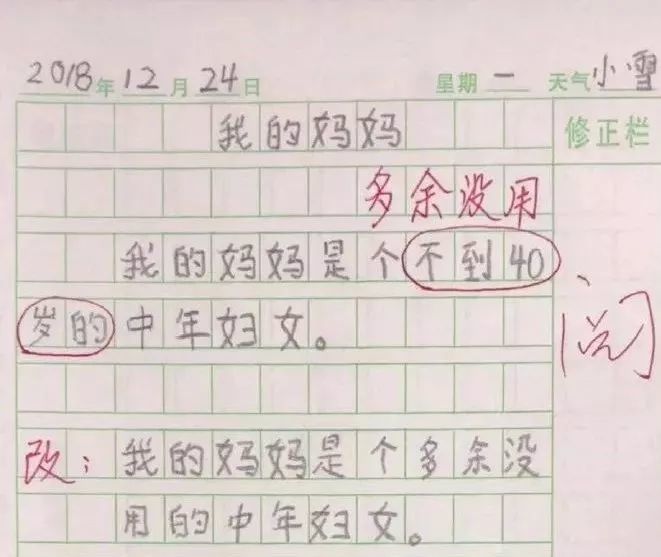 2018年12月24日 星期一 天气小雪
我的妈妈
修正栏
多余没用
我的妈妈是个不到40
岁的中年妇女。
阅
改：我的妈妈是个多余没
用的中年妇女。